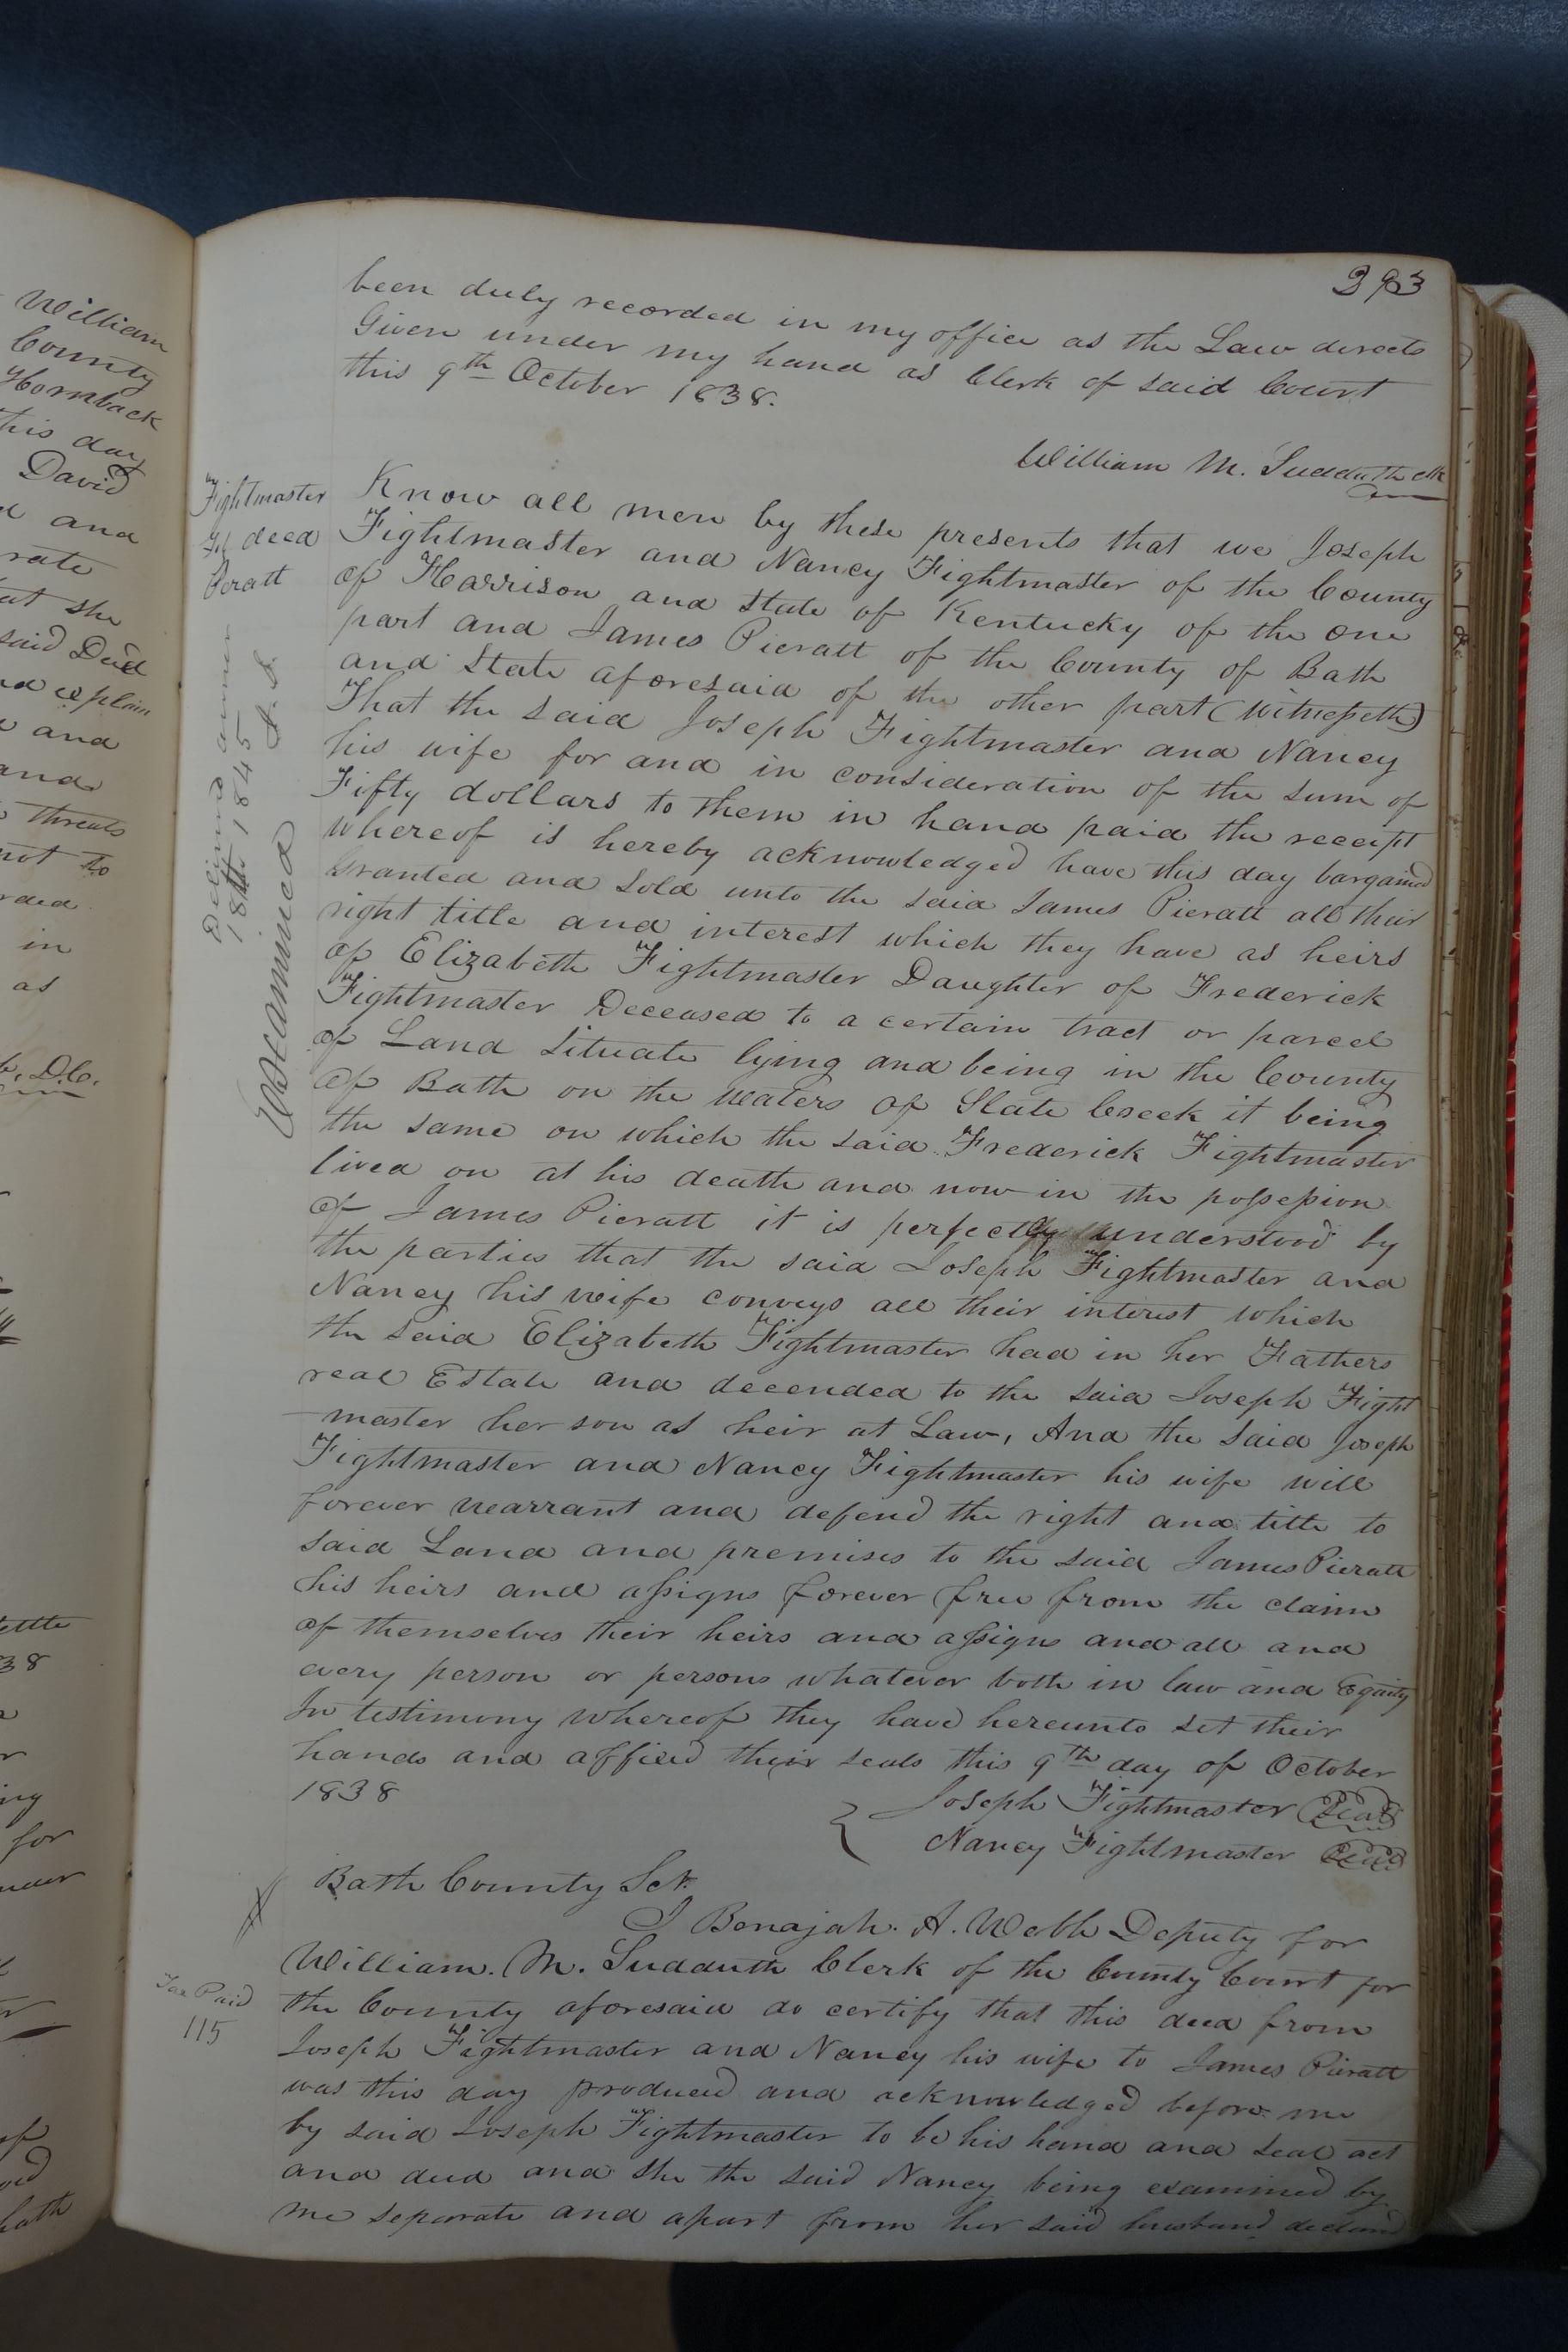 William
County
Hornback
this day
David
and
rate
at she
said Deed
and explain
and
and
threats
not to
rded
in
as
D.C.
38
for
of
hath
393
been duly recorded in my office as the Law directs
Given under my hand as Clerk of said Court
this 9th October 1838.
William M. Sudduth clk
Fightmaster
deed
Pieratt
Delivered
18th 1845
Examined
Know all men by these presents that we Joseph
Fightmaster and Nancy Fightmaster of the County
of Harrison and State of Kentucky of the one
part and James Pieratt of the County of Bath
and State aforesaid of the other part (Witnesseth)
That the said Joseph Fightmaster and Nancy
his wife for and in consideration of the sum of
Fifty dollars to them in hand paid the receipt
whereof is hereby acknowledged have this day bargained
Granted and Sold unto the said James Pieratt all their
right title and interest which they have as heirs
of Elizabeth Fightmaster Daughter of Frederick
Fightmaster Deceased to a certain tract or parcel
of Land Situate lying and being in the County
of Bath on the waters of Slate Creek it being
the same on which the said Frederick Fightmaster
lived on at his death and now in the possession
of James Pieratt it is perfectly understood by
the parties that the said Joseph Fightmaster and
Nancy his wife conveys all their interest which
the said Elizabeth Fightmaster had in her Fathers
real Estate and decended to the said Joseph Fight
master her son as heir at Law, And the said Joseph
Fightmaster and Nancy Fightmaster his wife will
forever warrant and defend the right and title to
said Land and premises to the said James Pieratt
his heirs and assigns forever free from the claim
of themselves their heirs and assigns and all and
every person or persons whatever both in law and Equity
In testimony whereof they have hereunto set their
hands and affixed their seals this 9th day of October
1838
Joseph Fightmaster Seal
Nancy Fightmaster Seal
Bath County Sct.
I Benajah. A. Webb Deputy for
William. M. Sudduth Clerk of the County Court for
Tax Paid
115
the County aforesaid do certify that this deed from
Joseph Fightmaster and Nancy his wife to James Pieratt
was this day produced and acknowledged before me
by said Joseph Fightmaster to be his hand and seal act
and deed and she the said Nancy being examined by
me separate and apart from her said husband declared